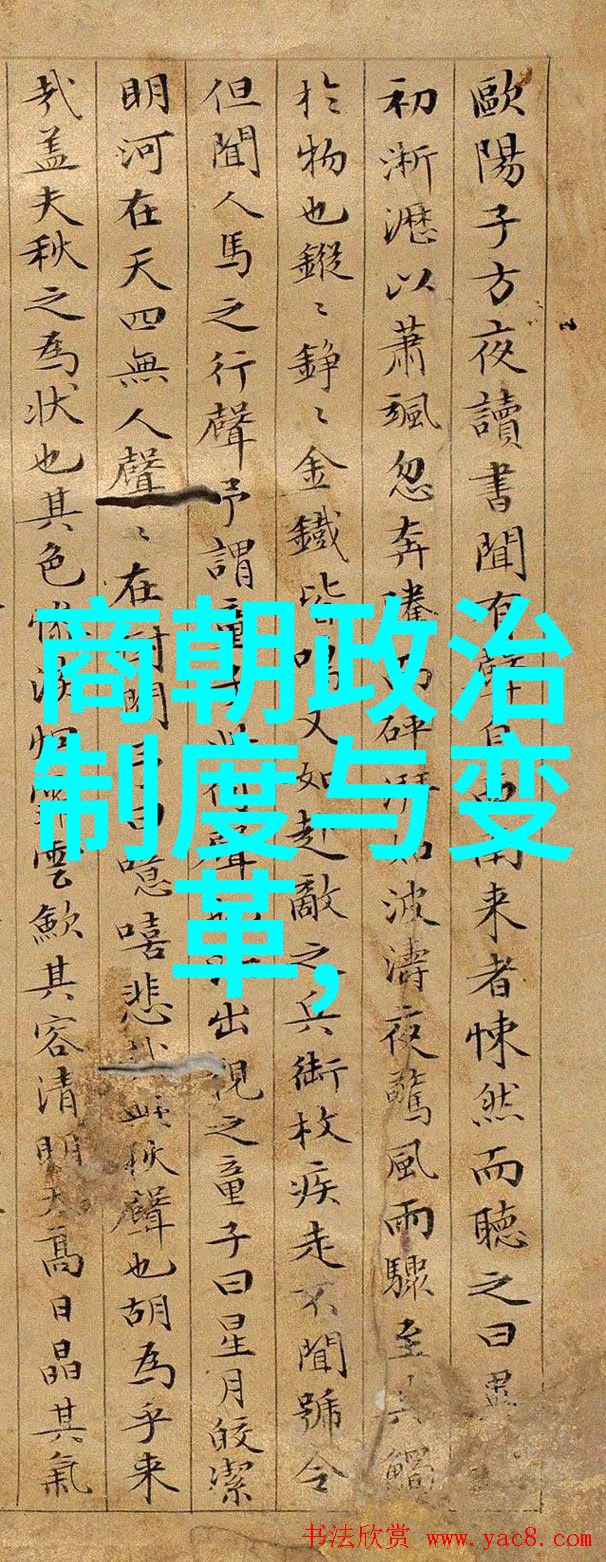 商朝政治
制度与变
革,
歐陽子方夜讀書聞有聲自南来者悚然而聽之曰
初淅瀝以蕭颯忽奔騰而砰湃如波濤夜驚風雨驟至其觸
扵物也鏦〻錚〻金鐵皆鳴又如赴敵之兵銜枚疾走不聞號令
但聞人馬之行聲予謂童子此何聲出視之童子曰星月皎潔
明河在天四無人聲〻在樹間予曰噫嘻悲秋聲也胡為乎来
哉盖夫秋之為狀也其色慘淡烟霏雲歛其容清明天高日晶其氣
书法欣赏 www.yac8.com